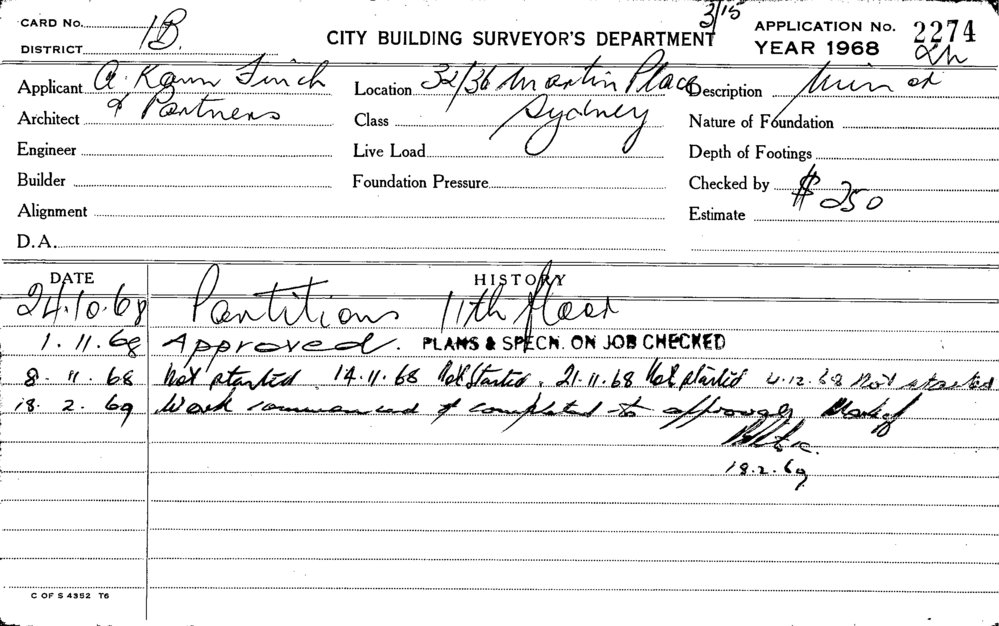 3/15
CARD No.
DISTRICT 1B.
CITY BUILDING SURVEYOR'S DEPARTMENT
APPLICATION No. 2274
YEAR 1968
Applicant A. Kann Finch
Location 32/36 Martin Place
Description Minor
Architect & Partners
Class Sydney
Nature of Foundation
Engineer
Live Load
Depth of Footings
Builder
Foundation Pressure
Checked by
Alignment
Estimate $250
D.A.
DATE HISTORY
24.10.68 Partitions 11th floor
1.11.68 Approved. PLANS & SPECN. ON JOB CHECKED
8.11.68 Not started. 14.11.68 Not Started. 21.11.68 Not started 4.12.68 Not started
18.2.69 Work commenced & completed to approval
18.2.69
C OF S 4352 T6